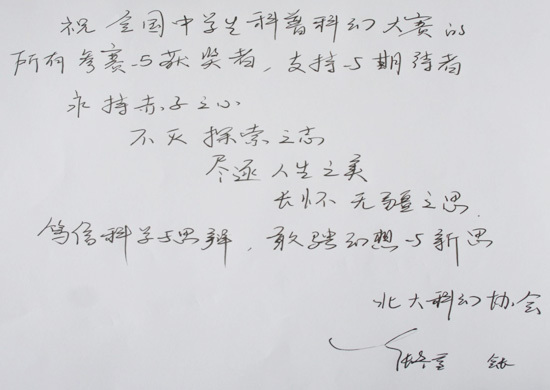 祝全国中学生科普科幻大赛的
所有参赛与获奖者，支持与期待者
永持赤子之心
不灭探索之志
尽逐人生之美
长怀无疆之思
笃信科学与思辩，敢骋幻想与新思
北大科幻协会
会长